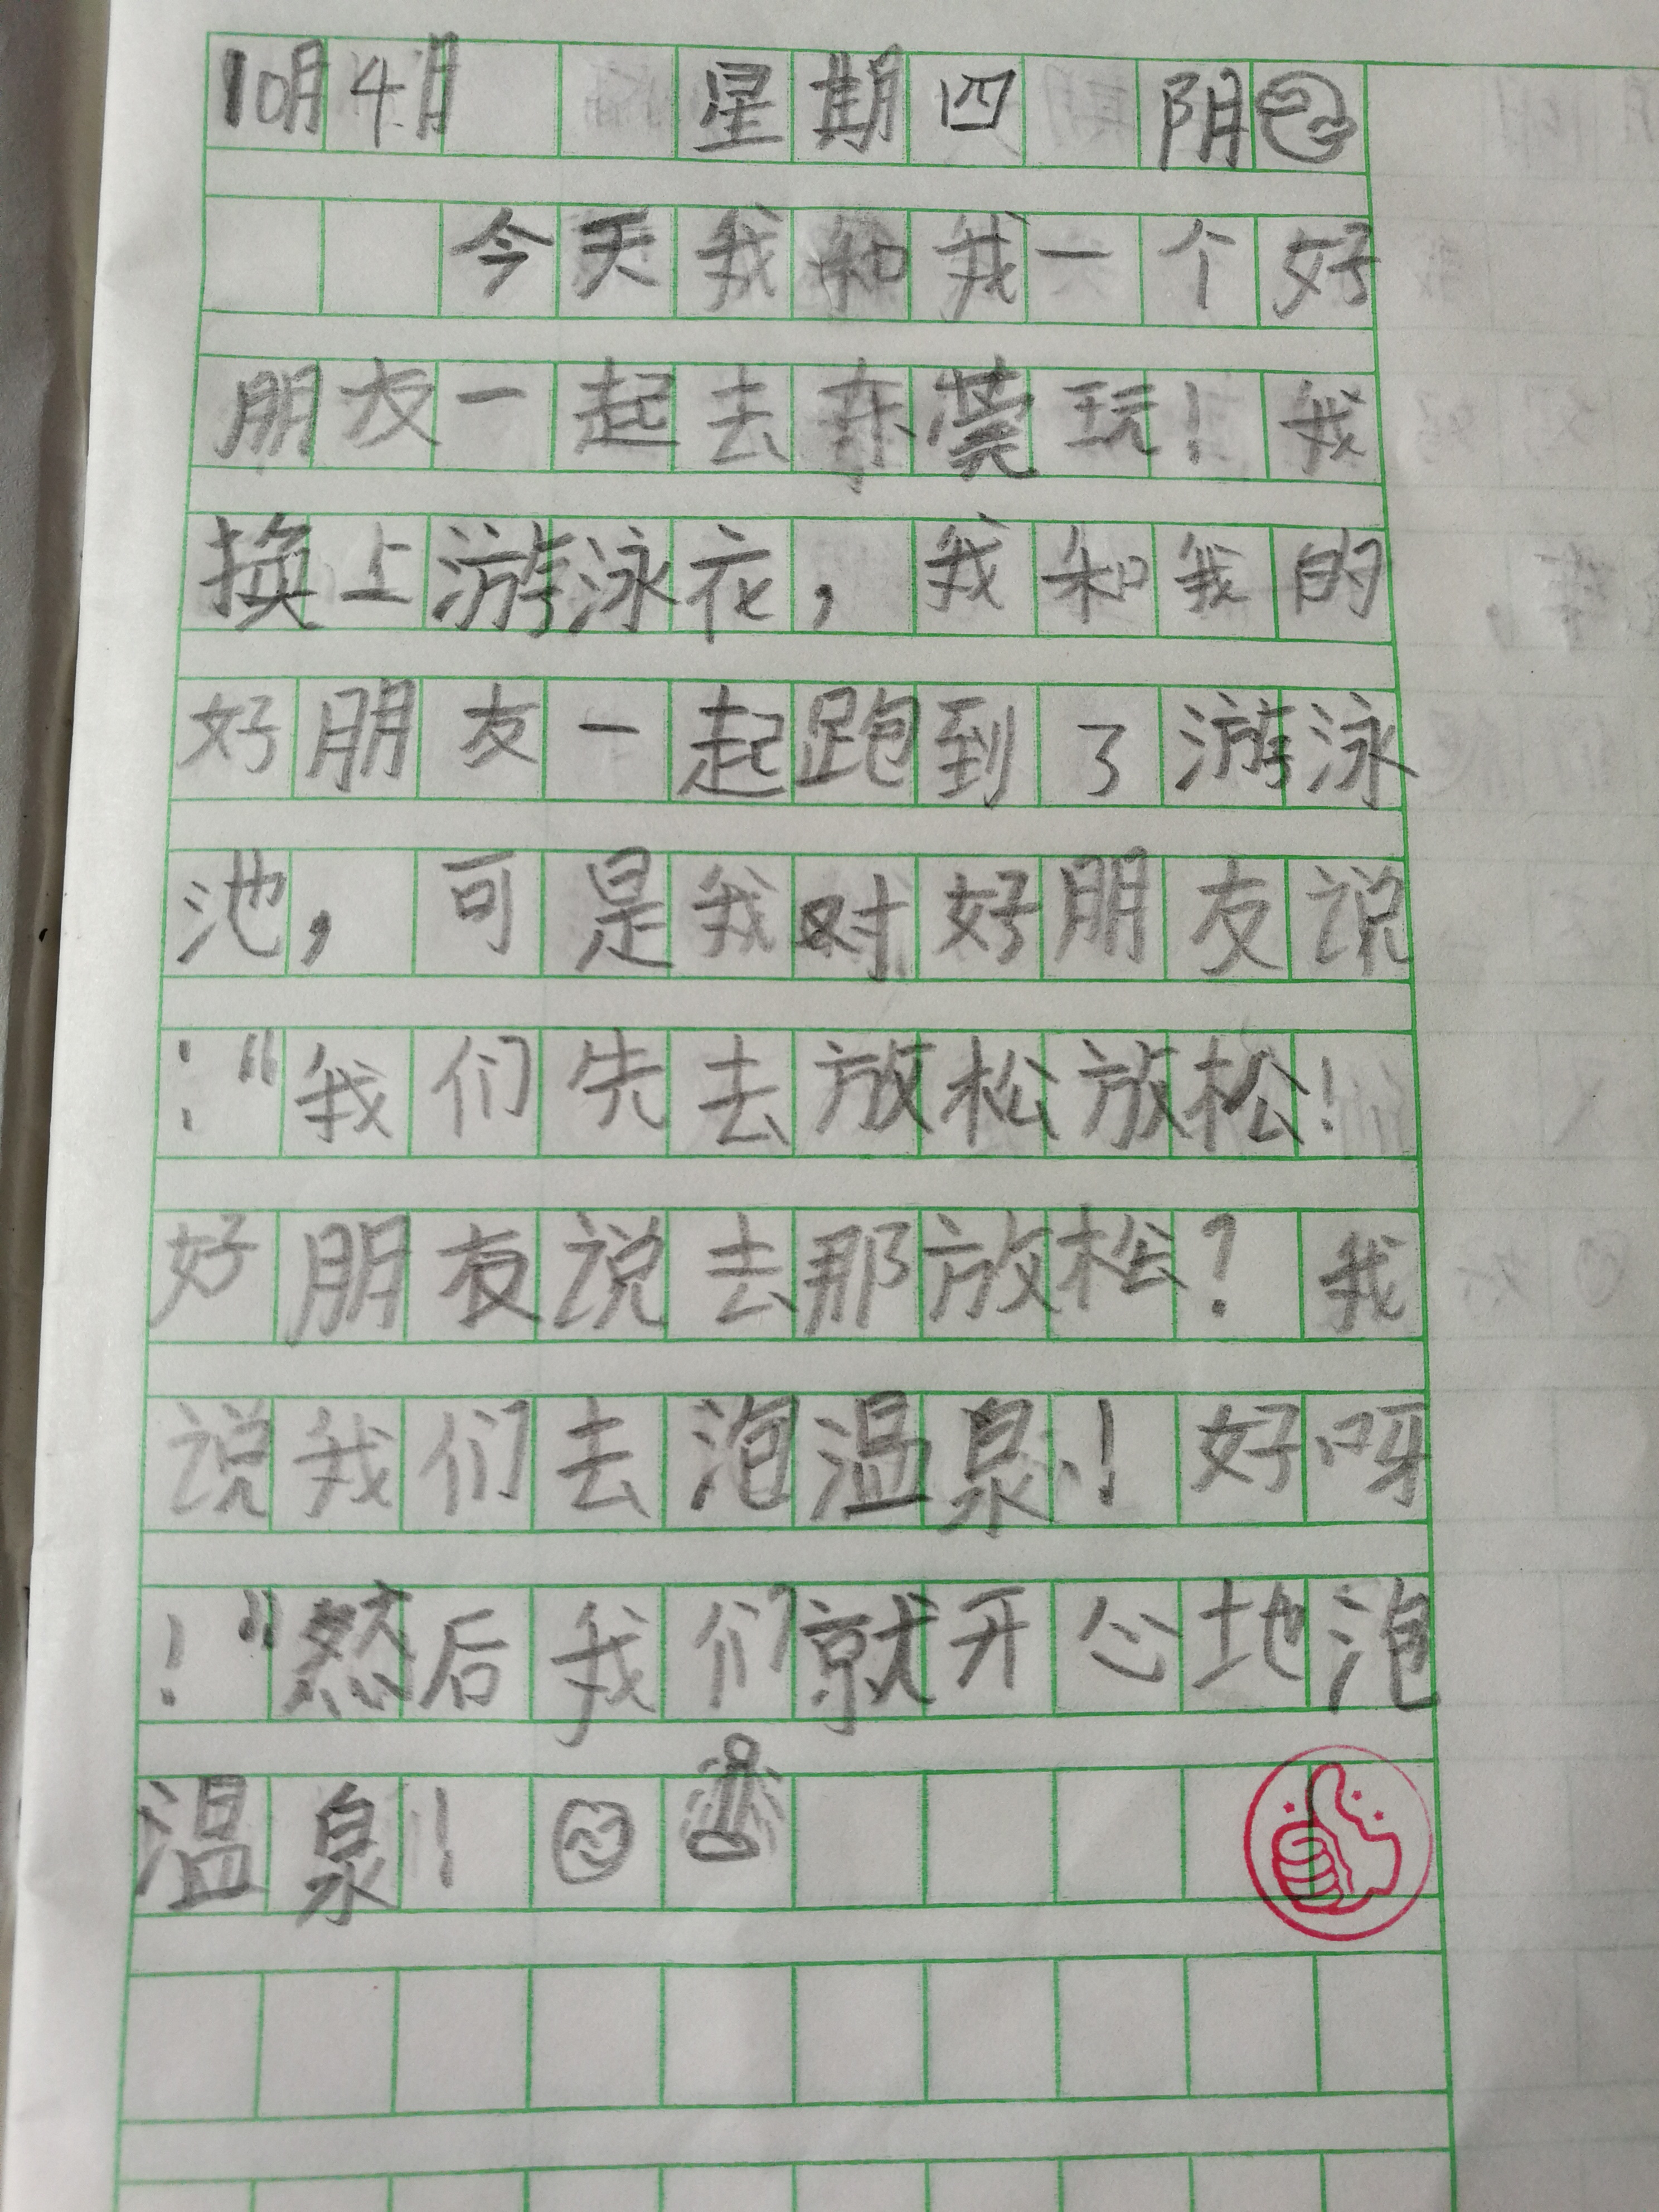 10月4月 星期四 阴
今天我和我一个好
朋友一起去东莞玩！我
换上游泳衣，我和我的
好朋友一起跑到了游泳
池，可是我对好朋友说
：“我们先去放松放松！
好朋友说去那放松？我
说我们去泡温泉！好呀
！”然后我们就开心地泡
温泉！